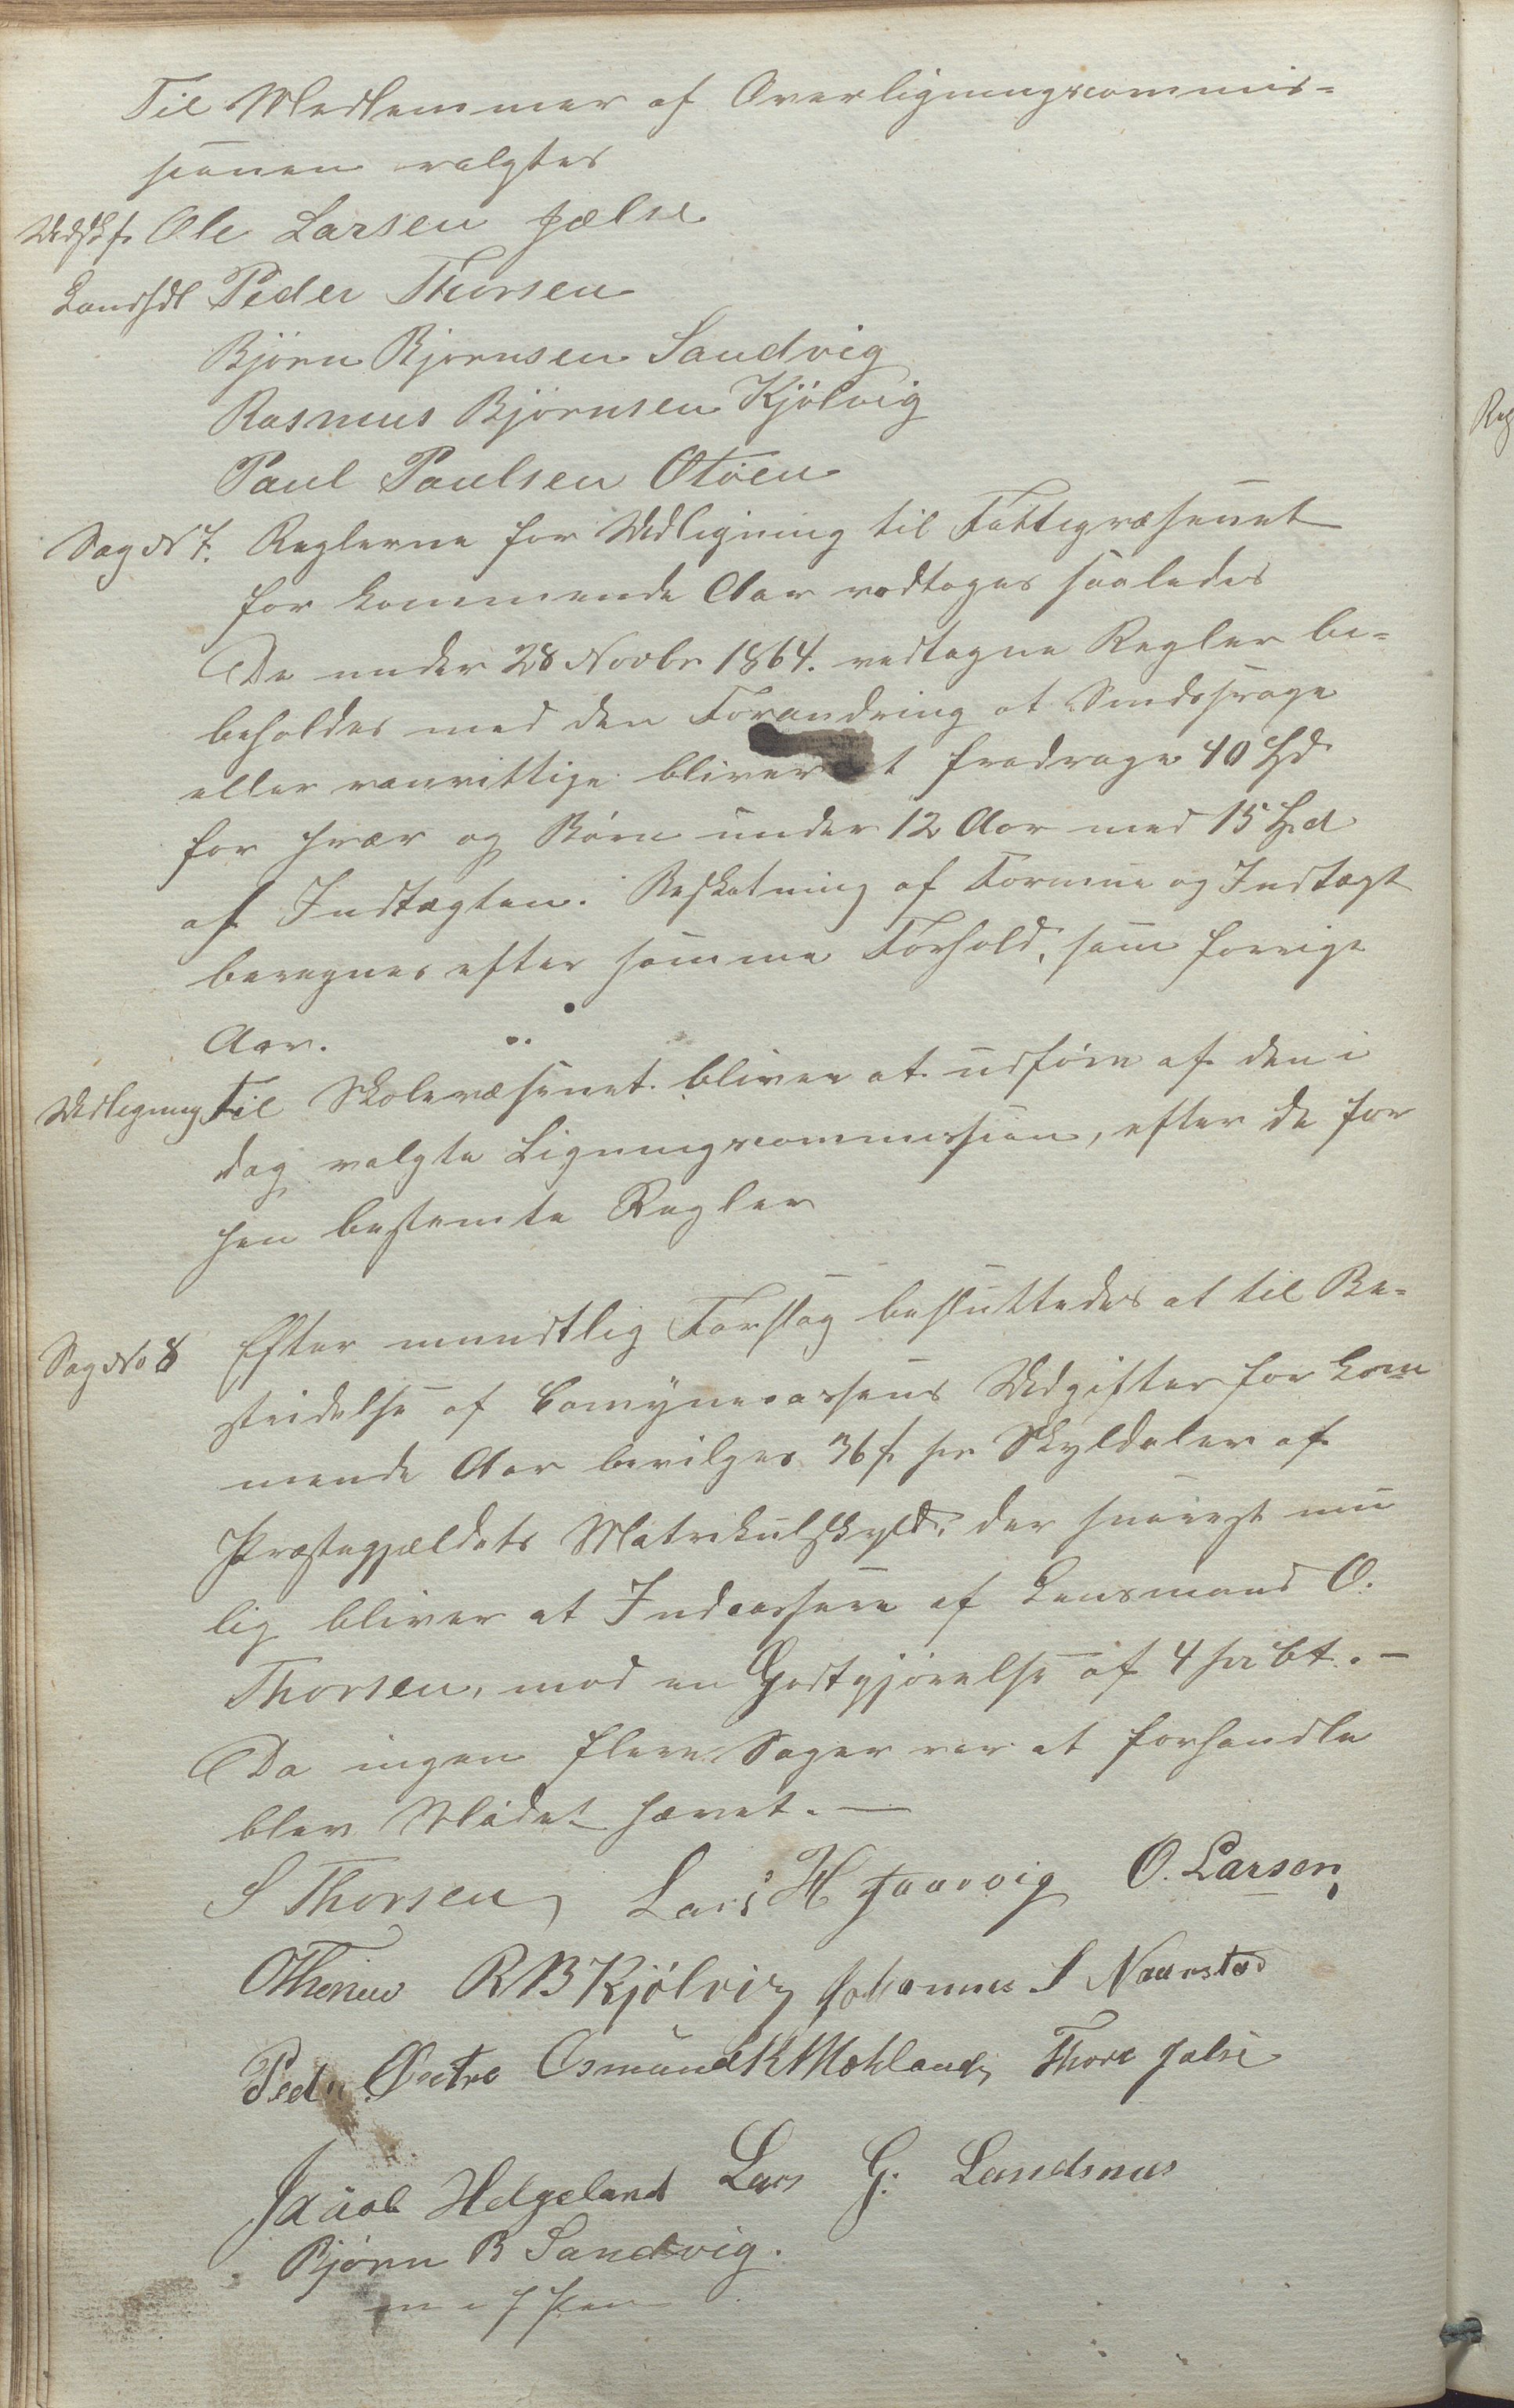 Til Medlemmer af Overligningscommis-
sionen valgtes
Udskf. Ole Larsen Jælse
Landhdl Peder Thorsen
Bjørn Bjørnsen Sandvig
Rasmus Bjørnsen Kjølvig
Paul Paulsen Otøen
Sag No 7. Reglerne for Udligning til Fattigvæsenet
for kommende Aar vedtoges saaledes
De under 28 Novbr 1864. vedtagne Regler be-
beholdes med den Forandring at Sindssvage
eller vanvittige bliver at fradrage 40 Spd
for hver og Børn under 12 Aar med 15 Spd
af Indtægten. Beskatning af Formue og Indtægt
beregnes efter samme Forhold, som forrige
Aar.
Udligning Til Skolevæsenet bliver at udføre af den i
dag valgte Ligningscommission, efter de for
hen bestemte Regler
Sag No 8 Efter mundtlig Forslag besluttedes at til Be-
stridelse af Comunecassens Udgifter for kom
mende Aar bevilges 36 s. pr Skyldaler af
Præstegjældets Matrikulskyld, der snarest mu
lig bliver at Indcassere af Lensmand O.
Thorsen, mod en Godtgjørelse af 4 pr Ct. -
Da ingen flere Sager var at forhandle
blev Mødet hævet. -
S Thorsen, Lars H Haarvig O. Larsen,
OThorsen RBKjølvig Johannes S Naarstad
Peder Østre Osmund K Mohland, Thore Jalse
Jacob Helgeland Lars G. Landsnes
Bjørn B Sandvig.
m i f Pen